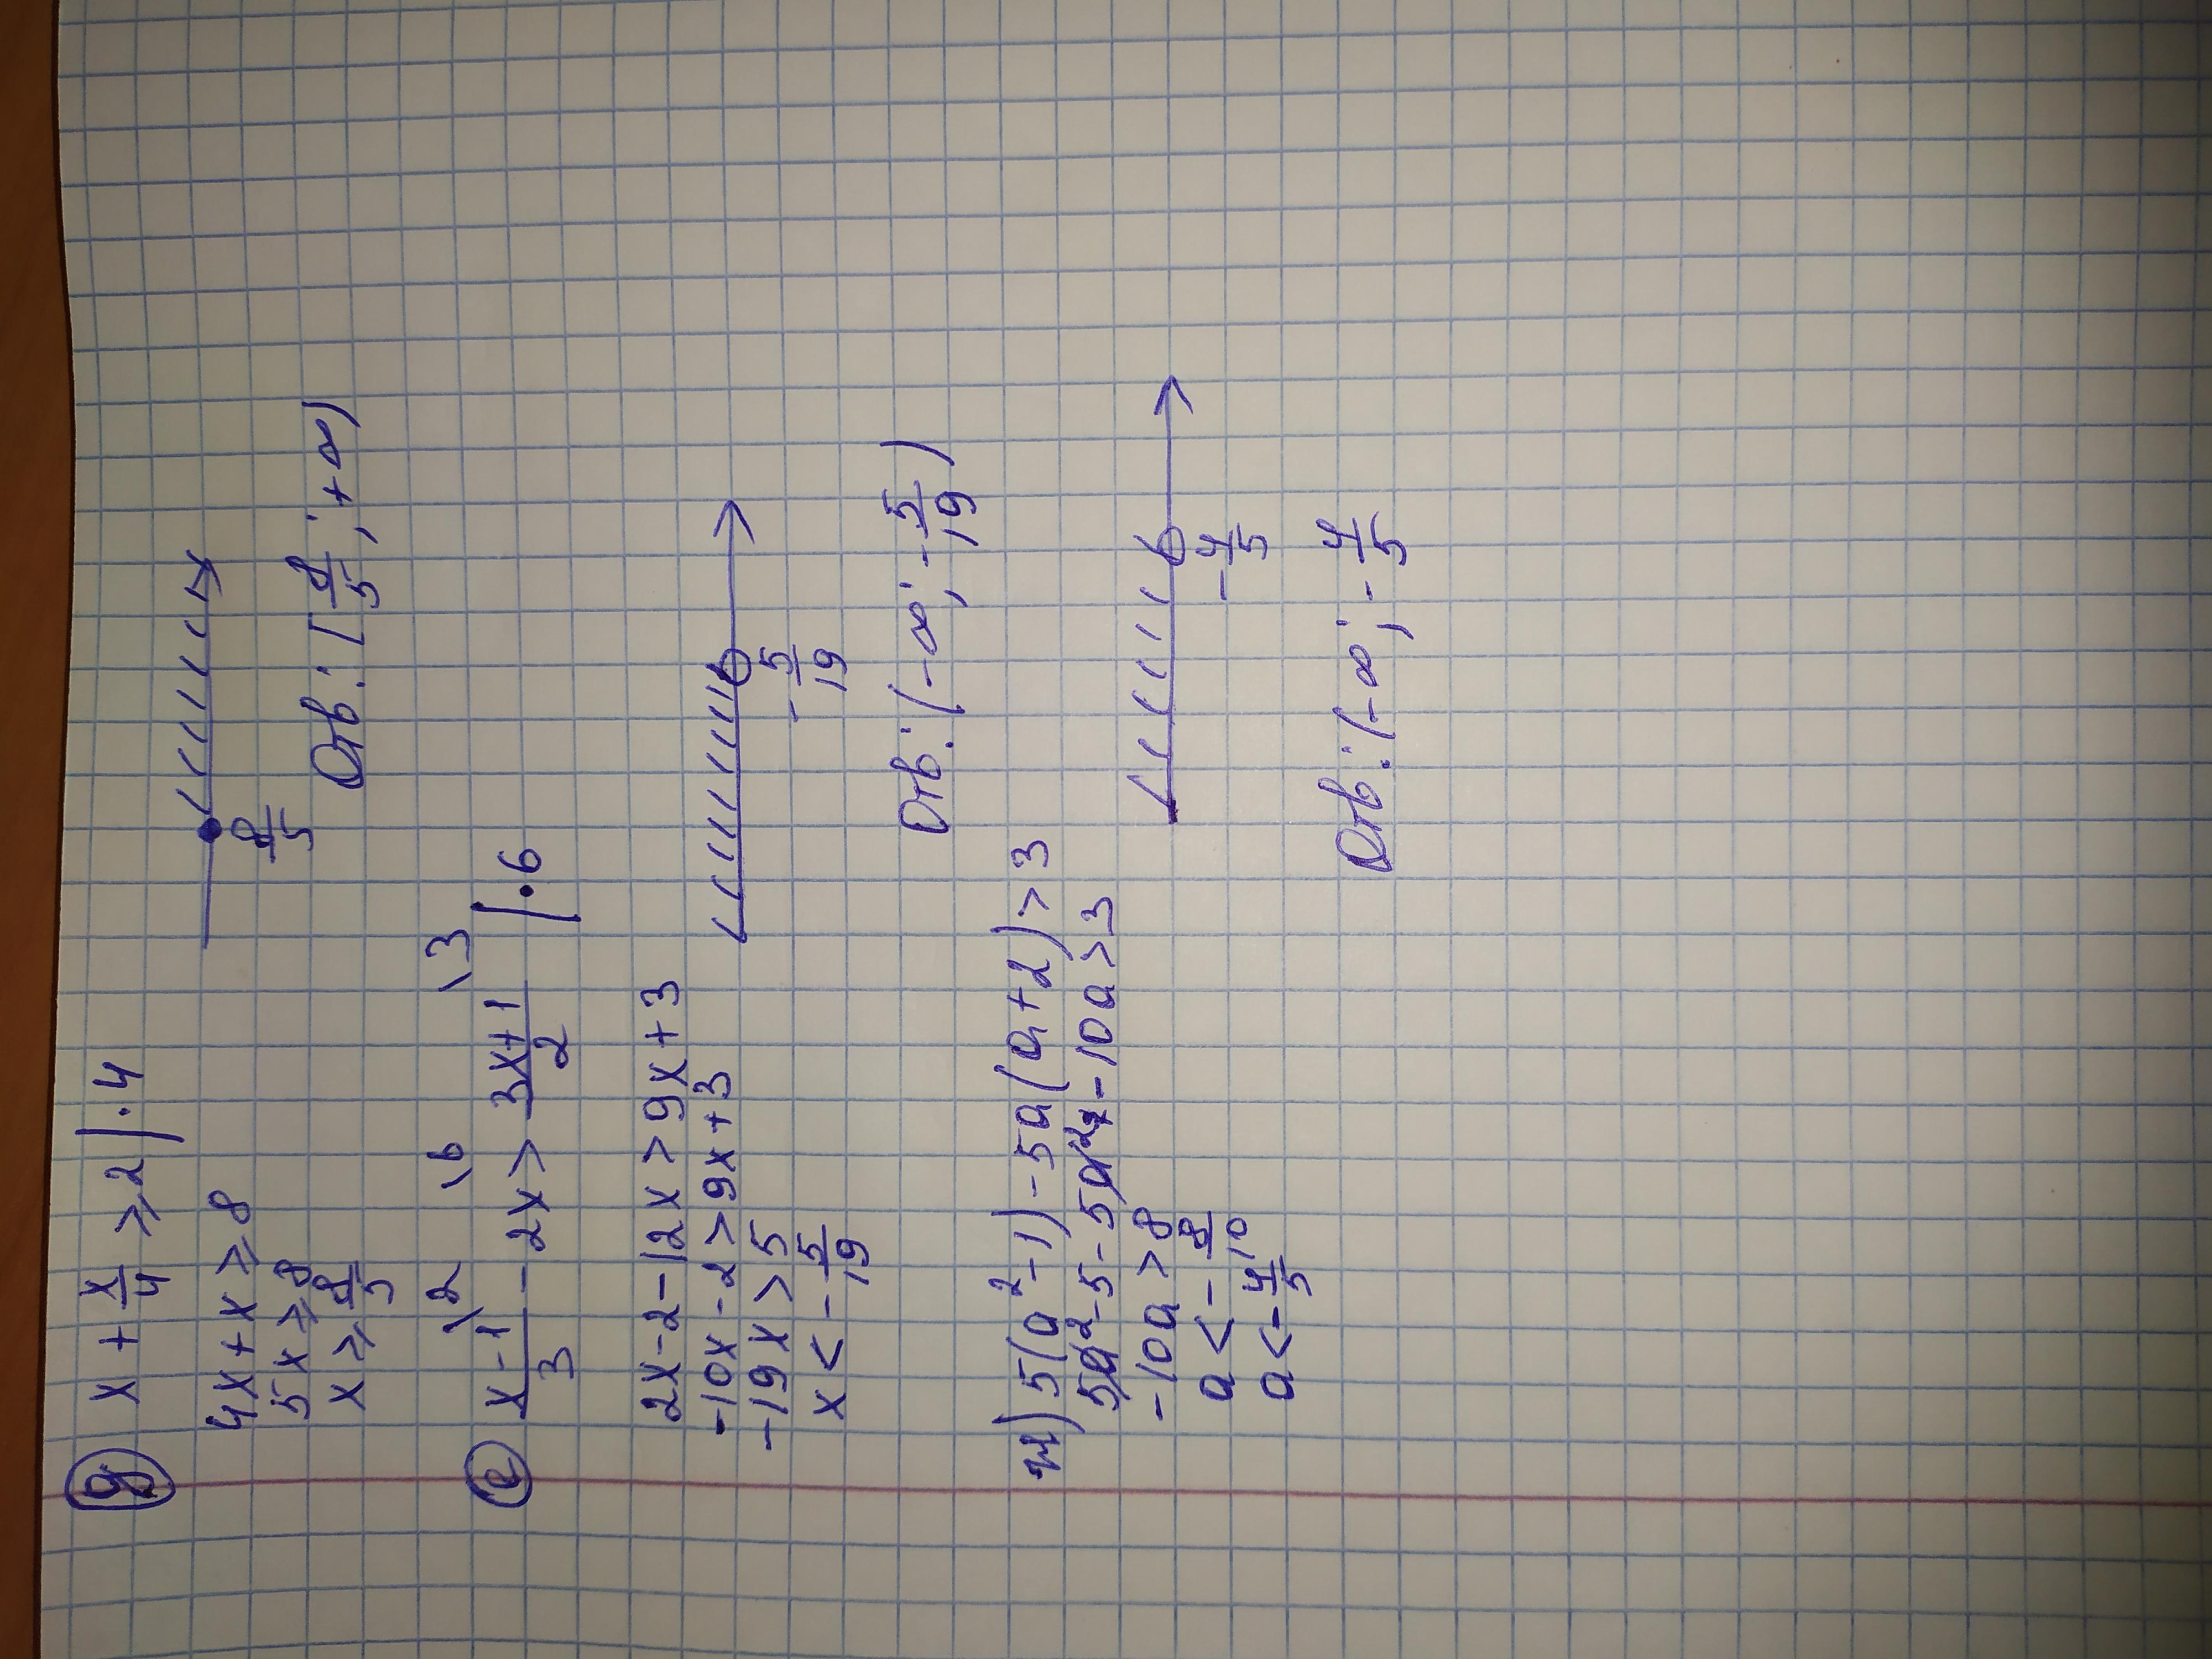 д) x + x/4 ⩾ 2 | · 4
4x + x ⩾ 8
5x ⩾ 8
x ⩾ 8/5
8/5
Отв.: [8/5; +∞)
е) x-1/3 \2 - 2x \6 > 3x+1/2 \3 | · 6
2x - 2 - 12x > 9x + 3
-10x - 2 > 9x + 3
-19x > 5
x < -5/19
-5/19
Отв.: (-∞; -5/19)
ж) 5(a² - 1) - 5a(a + 2) > 3
5a² - 5 - 5a² - 10a > 3
-10a > 8
a < -8/10
a < -4/5
-4/5
Отв.: (-∞; -4/5